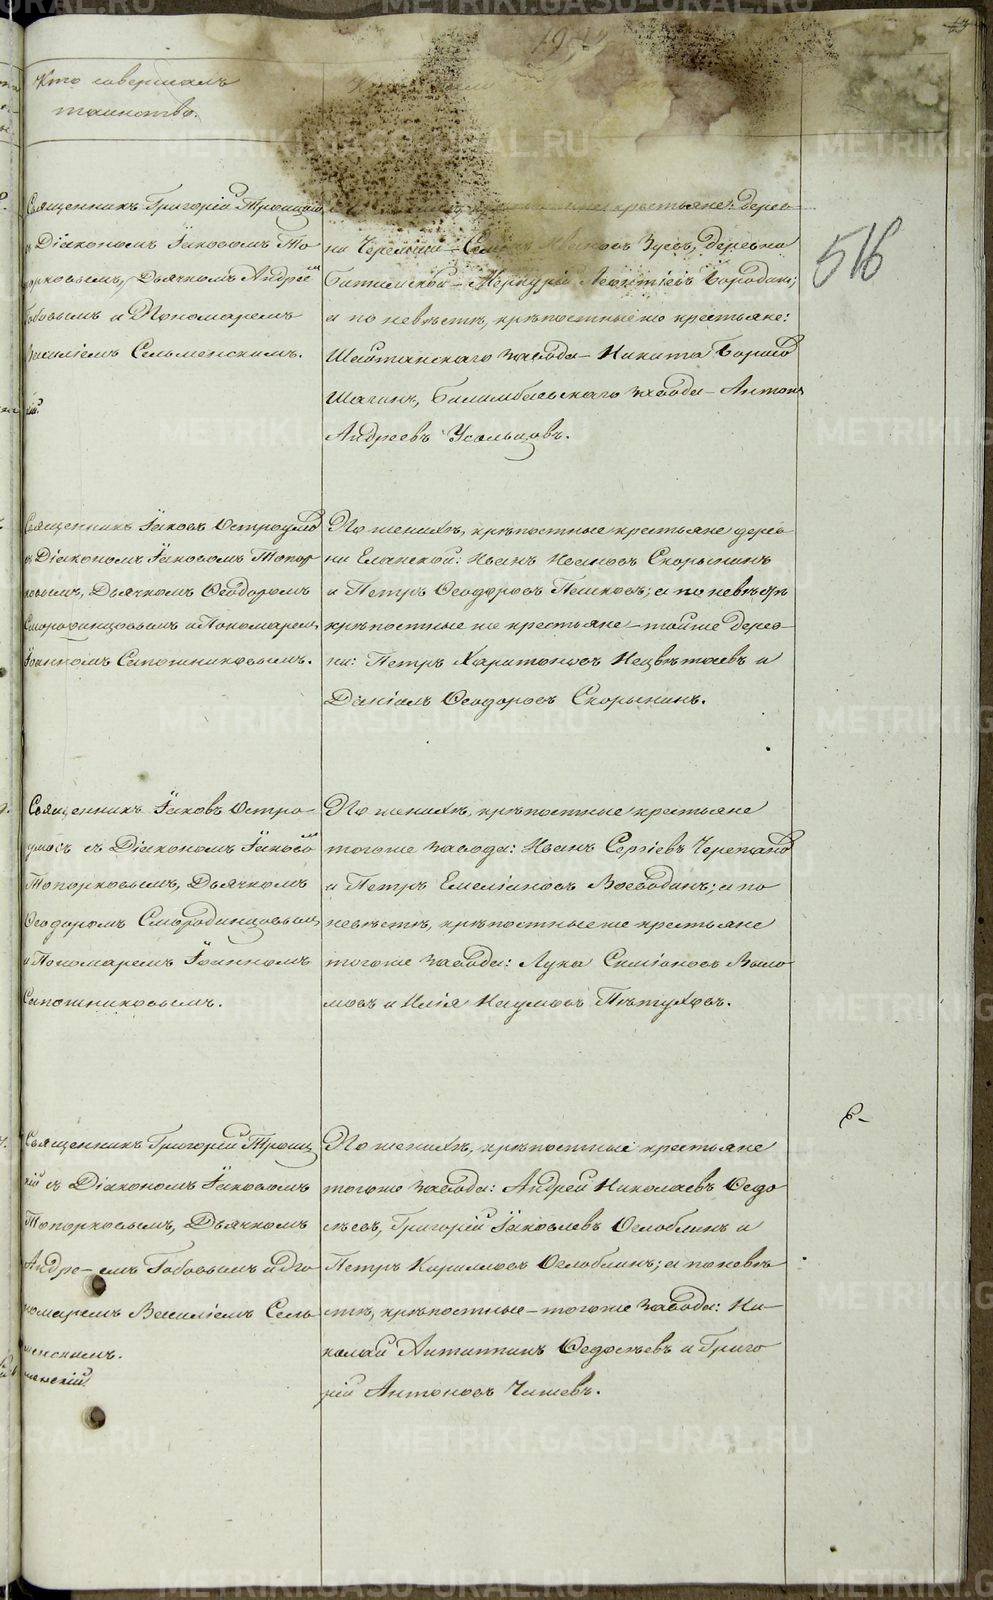 Кто совершалъ
таинство.
Священникъ Григорій Троицкій
съ Діакономъ Іаковомъ То
порковымъ, Дьячкомъ Андреем
Бобовымъ и Пономаремъ
Василіемъ Сельменскимъ.
крестьяне: Дерев
ни Черемши Зуевъ, деревни
Битимской Меркурій Леонтіевъ Бородинъ;
а по невѣстѣ, крѣпостные же крестьяне:
Шайтанскаго завода Никита Борисов
Шагинъ, Билимбаевскаго завода Антонъ
Андреевъ Усольцовъ.
516
Священникъ Іаковъ Остроумов
съ Діакономъ Іаковомъ Топор
ковымъ, Дьячкомъ Ѳеодоромъ
Смородинцовымъ и Пономарем
Іоанномъ Сапожниковымъ.
По женихѣ, крѣпостные крестьяне дерев
ни Еланской: Иванъ Ивановъ Скорынинъ
и Петръ Ѳеодоровъ Пешковъ; а по невѣстѣ
крѣпостные же крестьяне тойже дерев
ни: Петръ Харитоновъ Нецвѣтаевъ и
Даніилъ Ѳеодоровъ Скорынинъ.
Священникъ Іаковъ Остро
умовъ съ Діакономъ Іаковом
Топорковымъ, Дьячкомъ
Ѳеодоромъ Смородинцовым
и Пономаремъ Іоанномъ
Сапожниковымъ.
По женихѣ, крѣпостные крестьяне
тогоже завода: Иванъ Сергіевъ Черепанов
и Петръ Емеліановъ Воеводинъ; а по
невѣстѣ, крѣпостные же крестьяне
тогоже завода: Лука Симіоновъ Выло
мовъ и Илія Наумовъ Пѣтуховъ.
Священникъ Григорій Троиц
кій съ Діакономъ Іаковомъ
Топорковымъ, Дьячкомъ
Андре-емъ Бобовымъ и По
номаремъ Василіемъ Сель
менскимъ.
По женихѣ, крѣпостные крестьяне
тогоже завода: Андрей Николаевъ Ѳедо
сѣевъ, Григорій Іаковлевъ Оглоблинъ и
Петръ Кириловъ Оглоблинъ; а по невѣ
стѣ, крѣпостные тогоже завода: Ни
колай Антипинъ Ѳедосѣевъ и Григо
рій Антоновъ Чижевъ.
METRIKI.GASO-URAL.RU